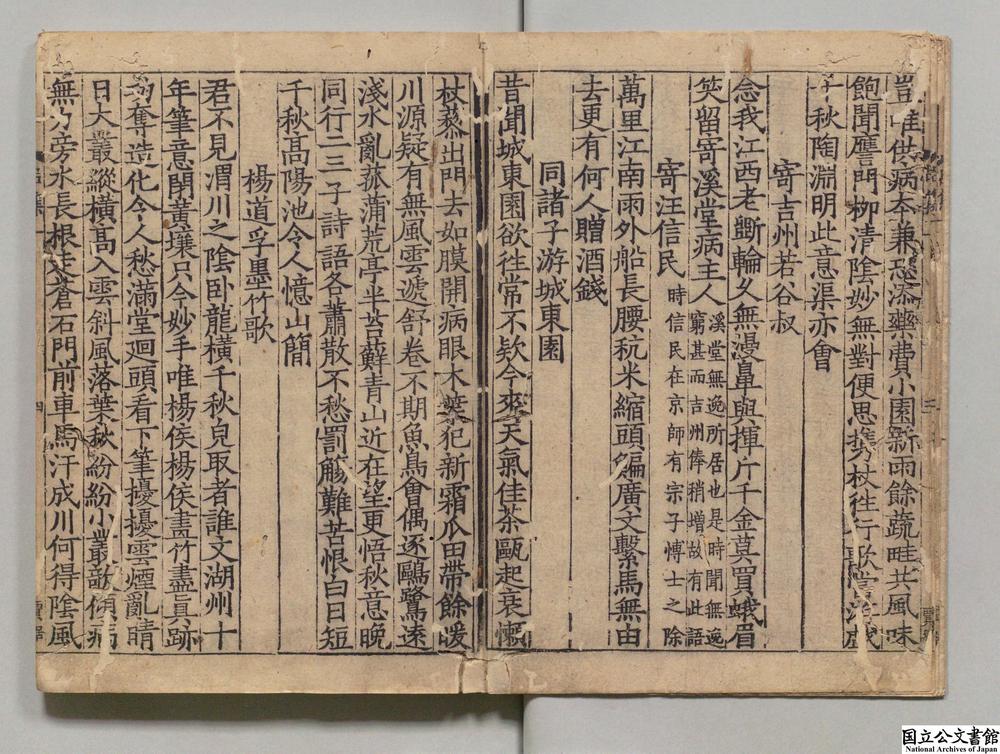 豈唯供病本兼恐添藥費小園新雨餘蔬畦共風味
飽聞譍門柳清陰妙無對便思携杖徃行歌
千秋陶淵明此意渠亦會
寄吉州若谷叔
念我江西老斵輪久無漫鼻與揮斤千金莫買蛾眉
笑留寄溪堂病主人
溪堂無逸所居也是時聞無逸
窮甚而吉州俸稍增故有此語
寄汪信民
時信民在京師有宗子愽士之除
萬里江南雨外船長腰秔米縮頭鯿廣文繫馬無由
去更有何人贈酒錢
同諸子游城東園
昔聞城東園欲徃常不欵今來天氣佳茶甌起衰懶
杖藜出門去如膜開病眼木葉犯新霜瓜田帶餘暖
川源疑有無風雲遞舒卷不期魚鳥會偶逐鷗鷺遠
淺水亂菰蒲荒亭半苔蘚青山近在望更悟秋意晚
同行二三子詩語各蕭散不愁罰觴難苦恨白日短
千秋高陽池令人憶山簡
楊道孚墨竹歌
君不見渭川之陰卧龍橫千秋皃取者誰文湖州十
年筆意閉黃壤只今妙手唯楊侯楊侯畵竹盡真跡
奪造化令人愁滿堂廻頭看下筆擾擾雲煙亂晴
日大叢縱橫高入雲斜風落葉秋紛紛小叢欹傾病
無乃旁水長根走蒼石門前車馬汗成川何得陰風
国立公文書館
National Archives of Japan